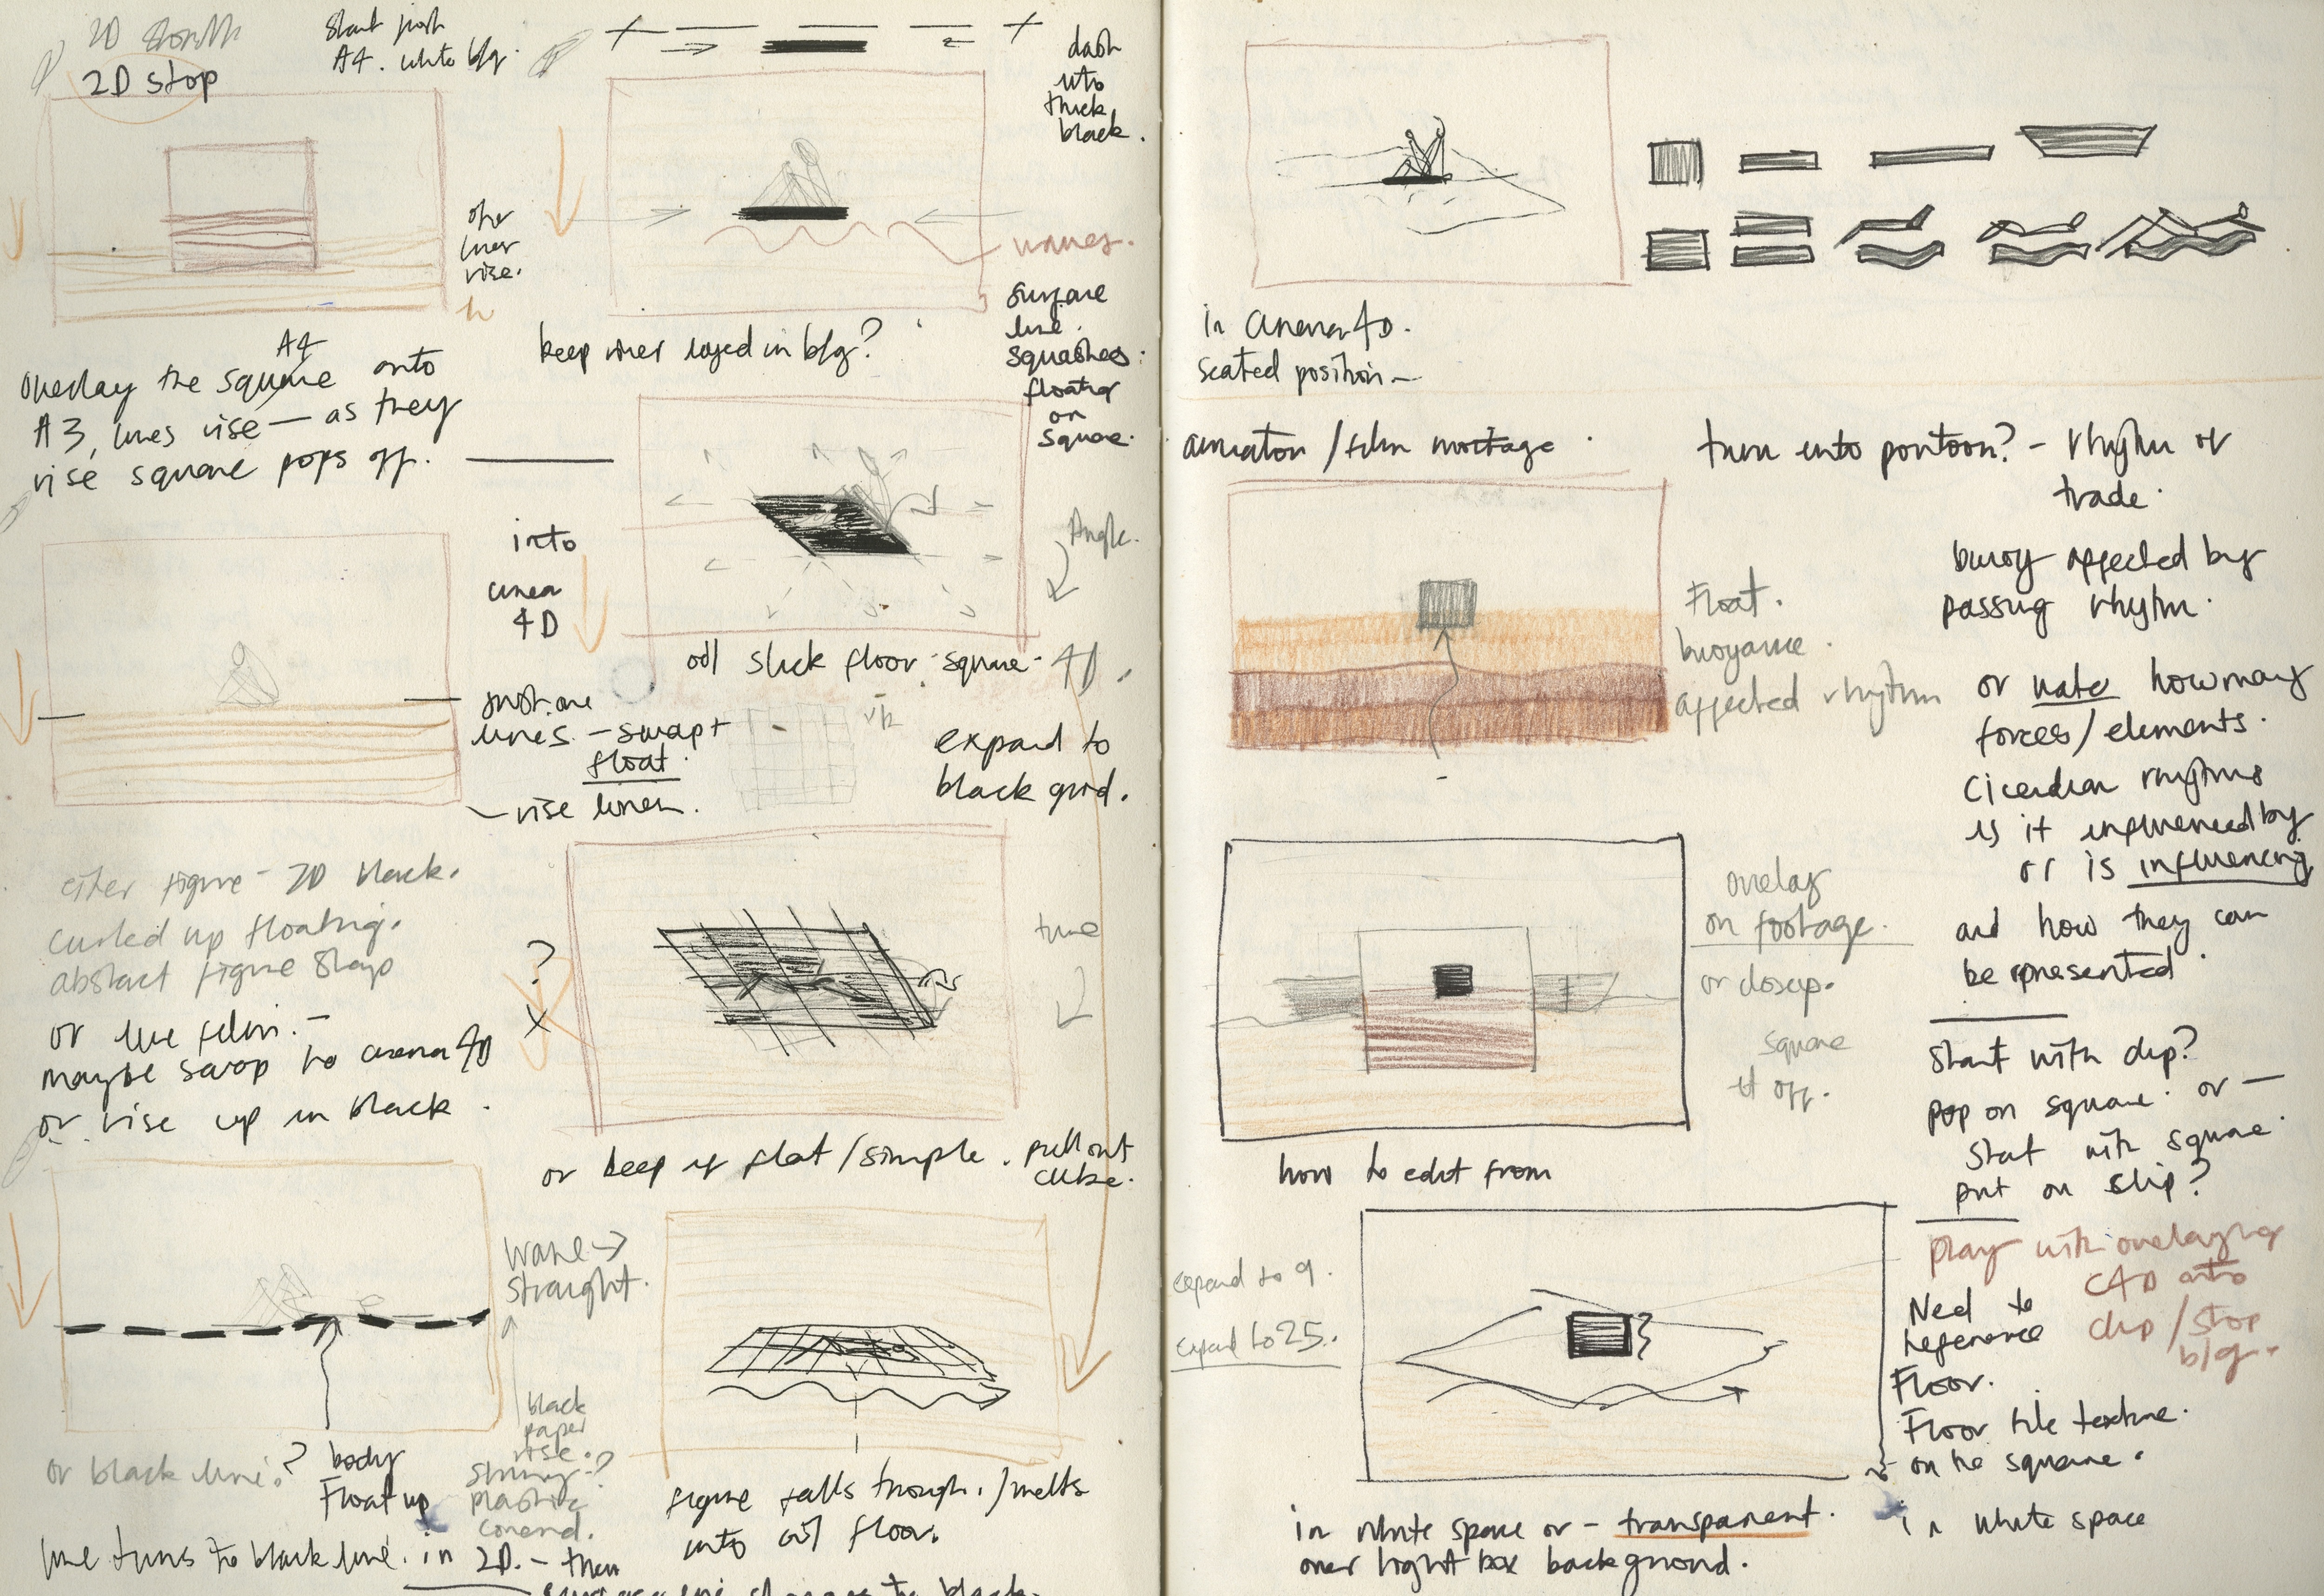 2D
2D stop
Start push
A4. white b/g.
dash
into
thick
black.
other
lines
rise.
waves.
Surface
line
squashes:
floating
on
square.
keep lines layed in b/g?
A4
overlay the square onto
A3, lines rise — as they
rise square pops off.
into
cinema
4D
Angle.
oil slick floor. square. 4D.
lines. - swap +
float.
- rise lines.
expand to
black grid.
either figure - 2D black.
curled up floating.
abstract figure shap
or live film. -
maybe swap to cinema 4D
or rise up in black.
?
x
tune
or keep it flat/simple. pull out
cube.
wave →
straight.
black
paper
rise.
string?
plastic
covered.
or black line?
body
Float up
line turns to black line. in 2D. - then
figure falls through. / melts
into oil floor.
in cinema 4D.
seated position -
animation / film montage.
turn into pontoon? - rhythm or
trade.
Float.
buoyance.
affected rhythm
buoy affected by
passing rhythm.
or note how many
forces/elements.
Cicerdian rhythms
is it influenced by
or is influencing
and how they can
be represented.
overlay
on footage.
or closeup.
square
it off.
how to edit from
Start with clip?
pop on square. or —
Start with square.
put on ship?
play with overlaying
C4D onto
clip / stop
b/g.
Need to
reference
Floor.
Floor tile texture.
on the square.
in white space
expand to 9.
expand to 25.
in white space or - transparent.
over light box background.